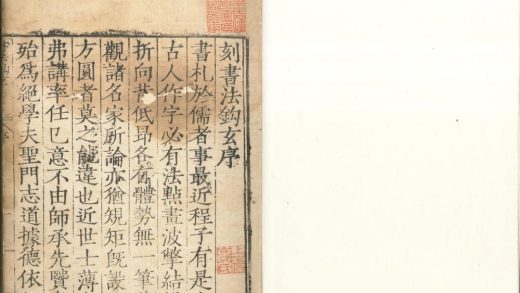 刻書法鈎玄序
書札於儒者事最近程子有是
古人作字必有法㸃畫波撆結
折向背低昂各有體勢無一筆
觀諸名家所論亦猶規矩旣設
方圓者莫之能違也近世士薄
弗講率任已意不由師承先賢
殆爲絶學夫聖門志道據德依